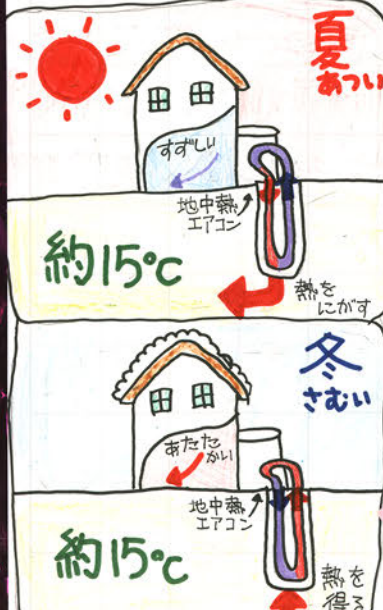 夏
あつい
すずしい
地中熱
エアコン
約15℃
熱を
にがす
冬
さむい
あたた
かい
地中熱
エアコン
約15℃
熱を
得る